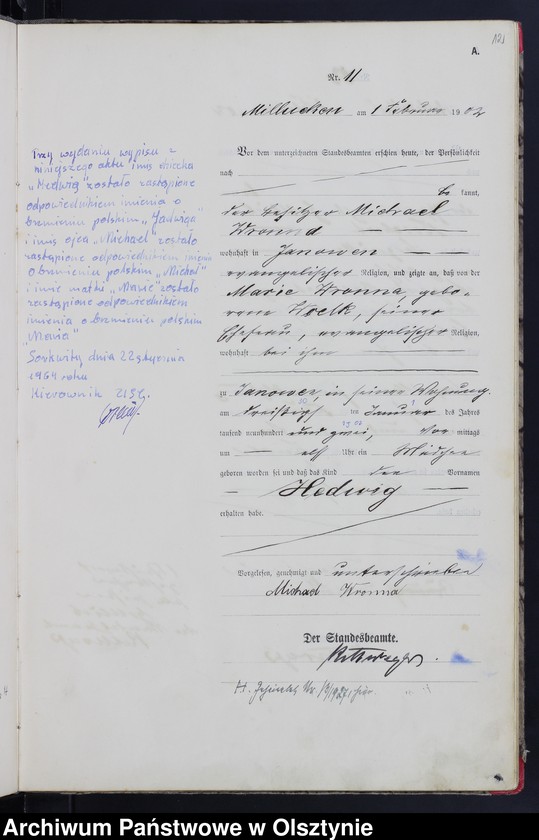 121
A.
Nr. 11
Millucken am 1 Februar 1902
Vor dem unterzeichneten Standesbeamten erschien heute, der Persönlichkeit
nach
be kannt,
der Besitzer Michael
Kronna
wohnhaft in Janowen
evangelischer Religion, und zeigte an, daß von der
Marie Kronna, gebo-
rene, seiner
Ehefrau, evangelischer Religion,
wohnhaft bei ihm
zu Janowen, in seiner Wohnung
am dreißigsten Januar des Jahres
tausend neunhundert und zwei, Vor mittags
um elf Uhr ein Mädchen
geboren worden sei und daß das Kind den Vornamen
Hedwig
erhalten habe.
Vorgelesen, genehmigt und unterschrieben
Michael Kronna
Der Standesbeamte.
Przy wydaniu wypisu z
niniejszego aktu imię dziecka
„Hedwig" zostało zastąpione
odpowiednikiem imienia o
brzmieniu polskim „Jadwiga"
i imię ojca „Michael" zostało
zastąpione odpowiednikiem imienia
o brzmieniu polskim „Michał"
i imię matki „Marie" zostało
zastąpione odpowiednikiem
imienia o brzmieniu polskim
„Maria"
Sorkwity dnia 22 stycznia
1964 roku
Kierownik USC.
Archiwum Państwowe w Olsztynie